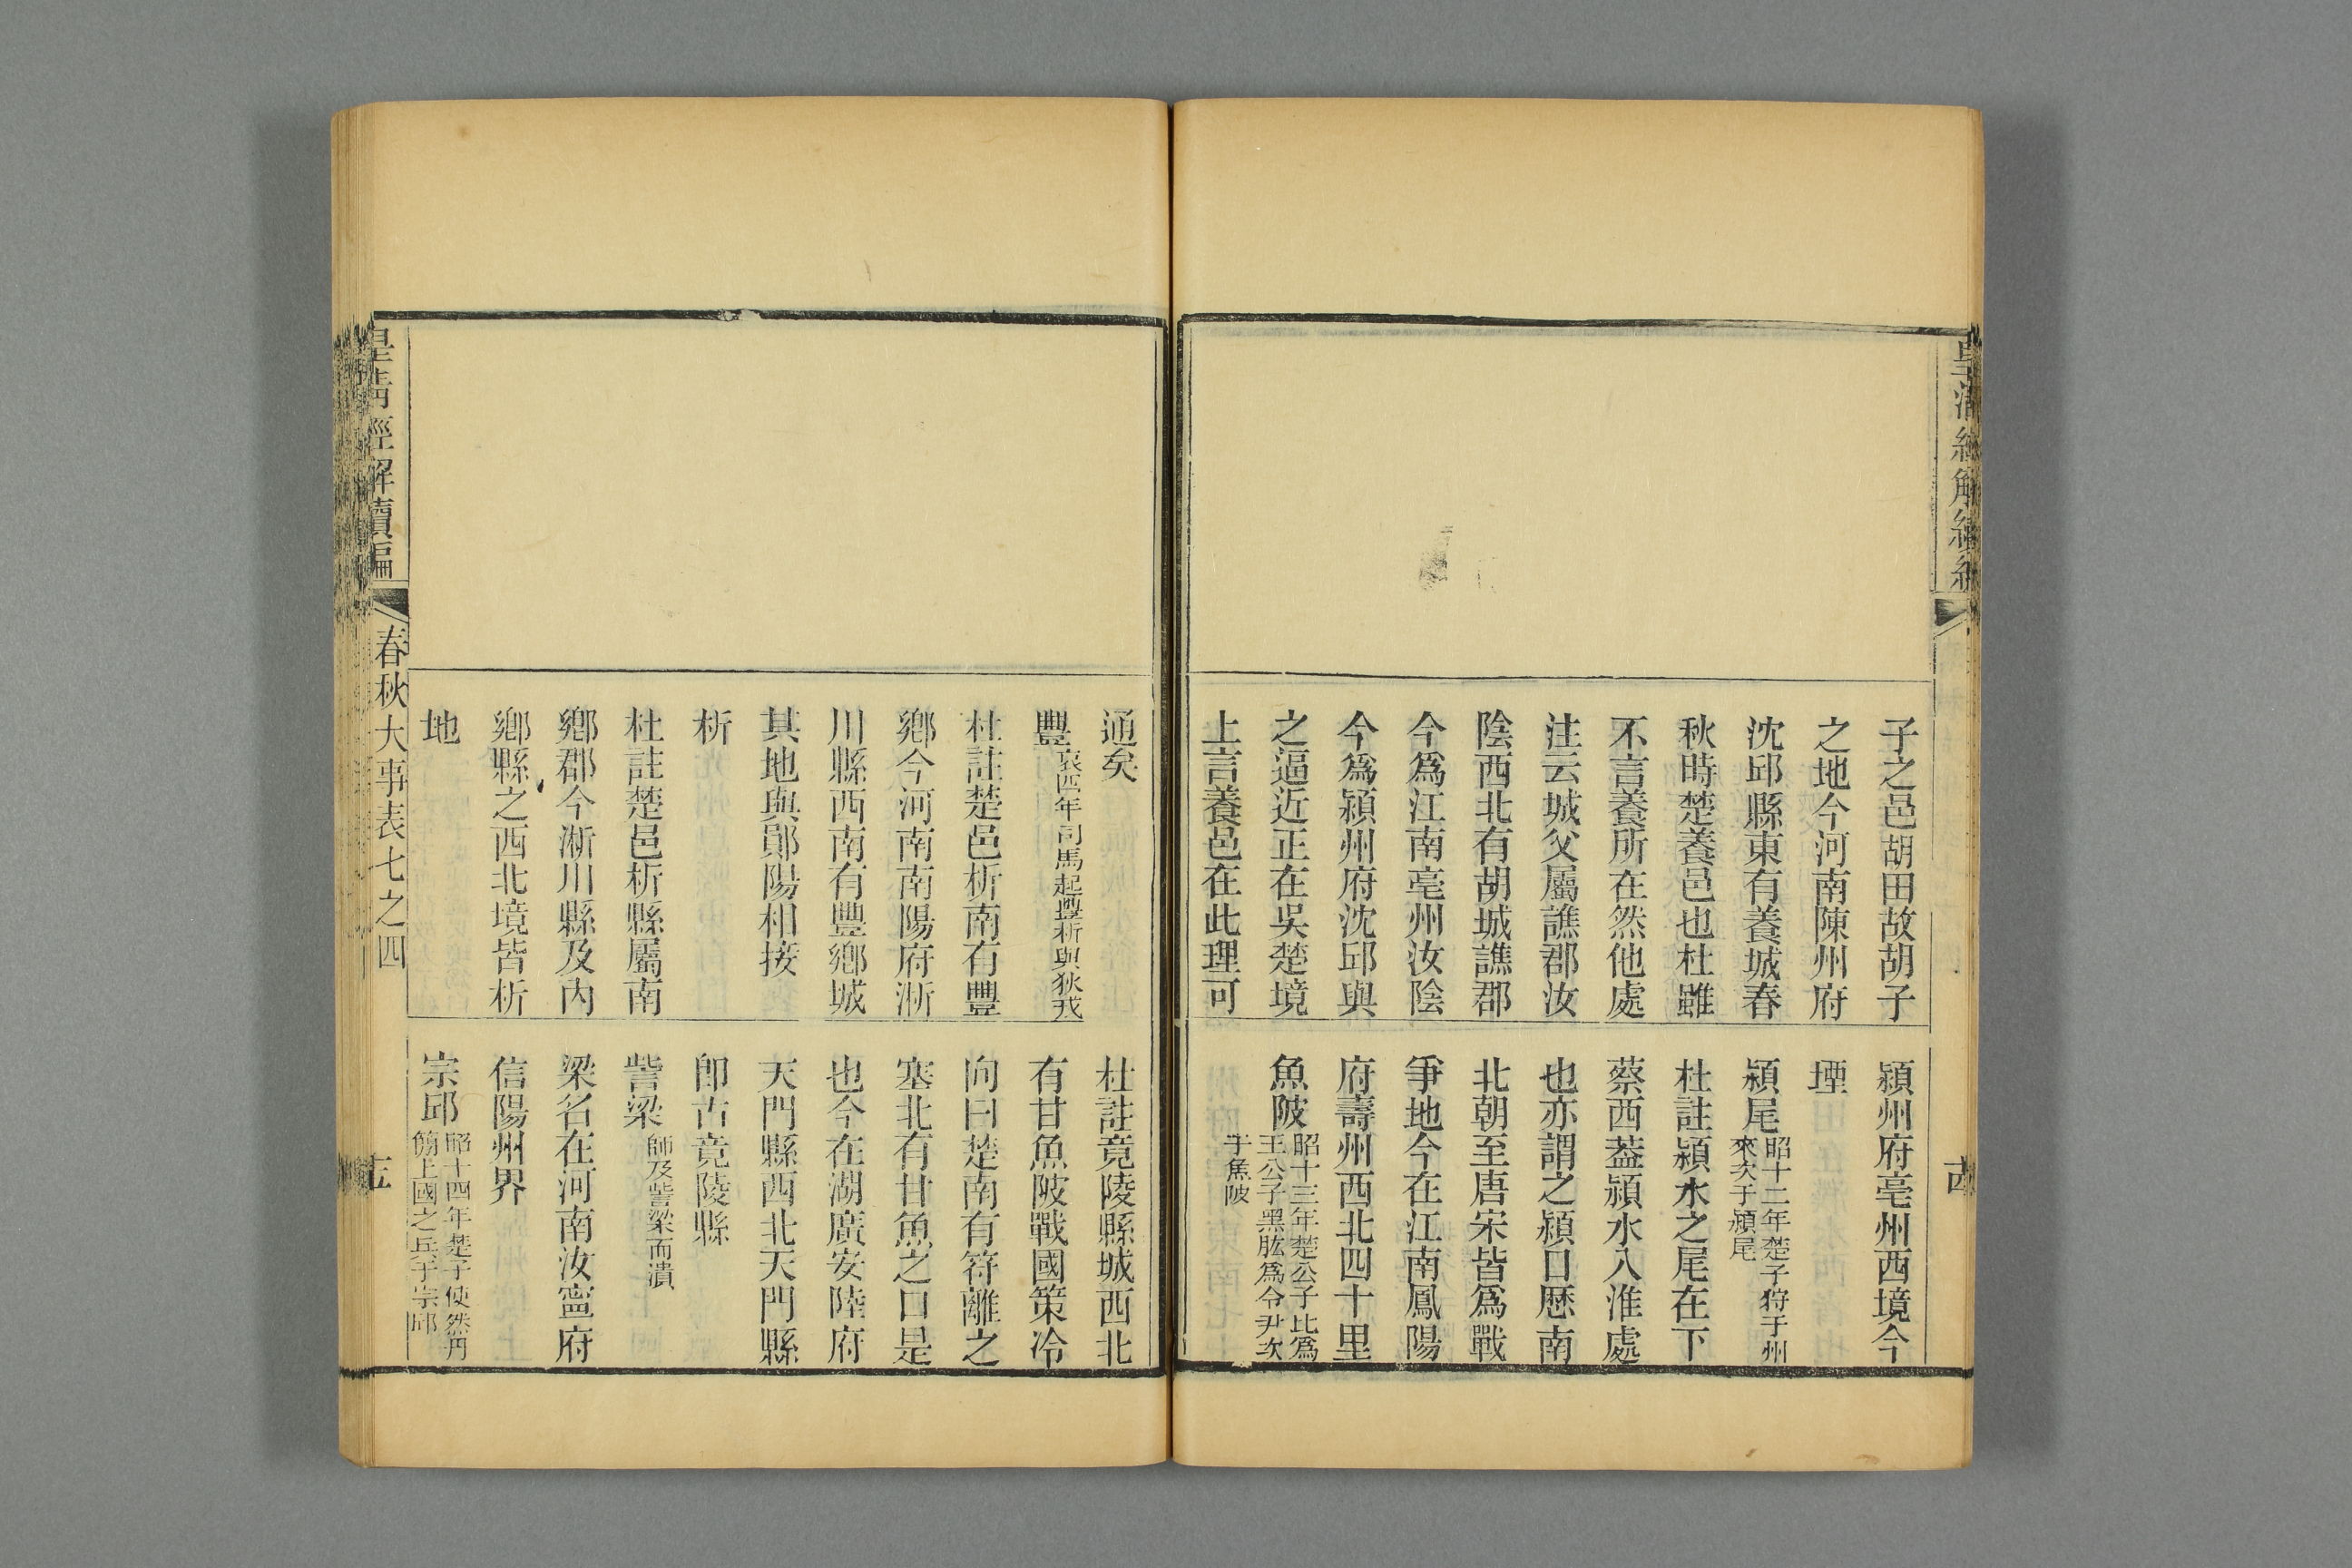 皇清經解續編
子之邑胡田故胡子
之地今河南陳州府
沈邱縣東有養城春
秋時楚養邑也杜雖
不言養所在然他處
注云城父屬譙郡汝
陰西北有胡城譙郡
今爲江南亳州汝陰
今爲潁州府沈邱與
之逼近正在吳楚境
上言養邑在此理可
潁州府亳州西境今
堙
潁尾昭十二年楚子狩于州
來次于潁尾
杜註潁水之尾在下
蔡西葢潁水入淮處
也亦謂之潁口歷南
北朝至唐宋皆爲戰
爭地今在江南鳳陽
府壽州西北四十里
魚陂昭十三年楚公子比爲
王公子黑肱爲令尹次
于魚陂
通矣
豐哀四年司馬起豐析與狄戎
杜註楚邑析南有豐
鄉今河南南陽府淅
川縣西南有豐鄉城
其地與鄖陽相接
析
杜註楚邑析縣屬南
鄉郡今淅川縣及內
鄉縣之西北境皆析
地
杜註竟陵縣城西北
有甘魚陂戰國策冷
向曰楚南有符離之
塞北有甘魚之口是
也今在湖廣安陸府
天門縣西北天門縣
卽古竟陵縣
訾梁師及訾梁而潰
梁名在河南汝寧府
信陽州界
宗邱昭十四年楚子使然丹
簡上國之兵于宗邱
皇清經解續編
春秋大事表七之四